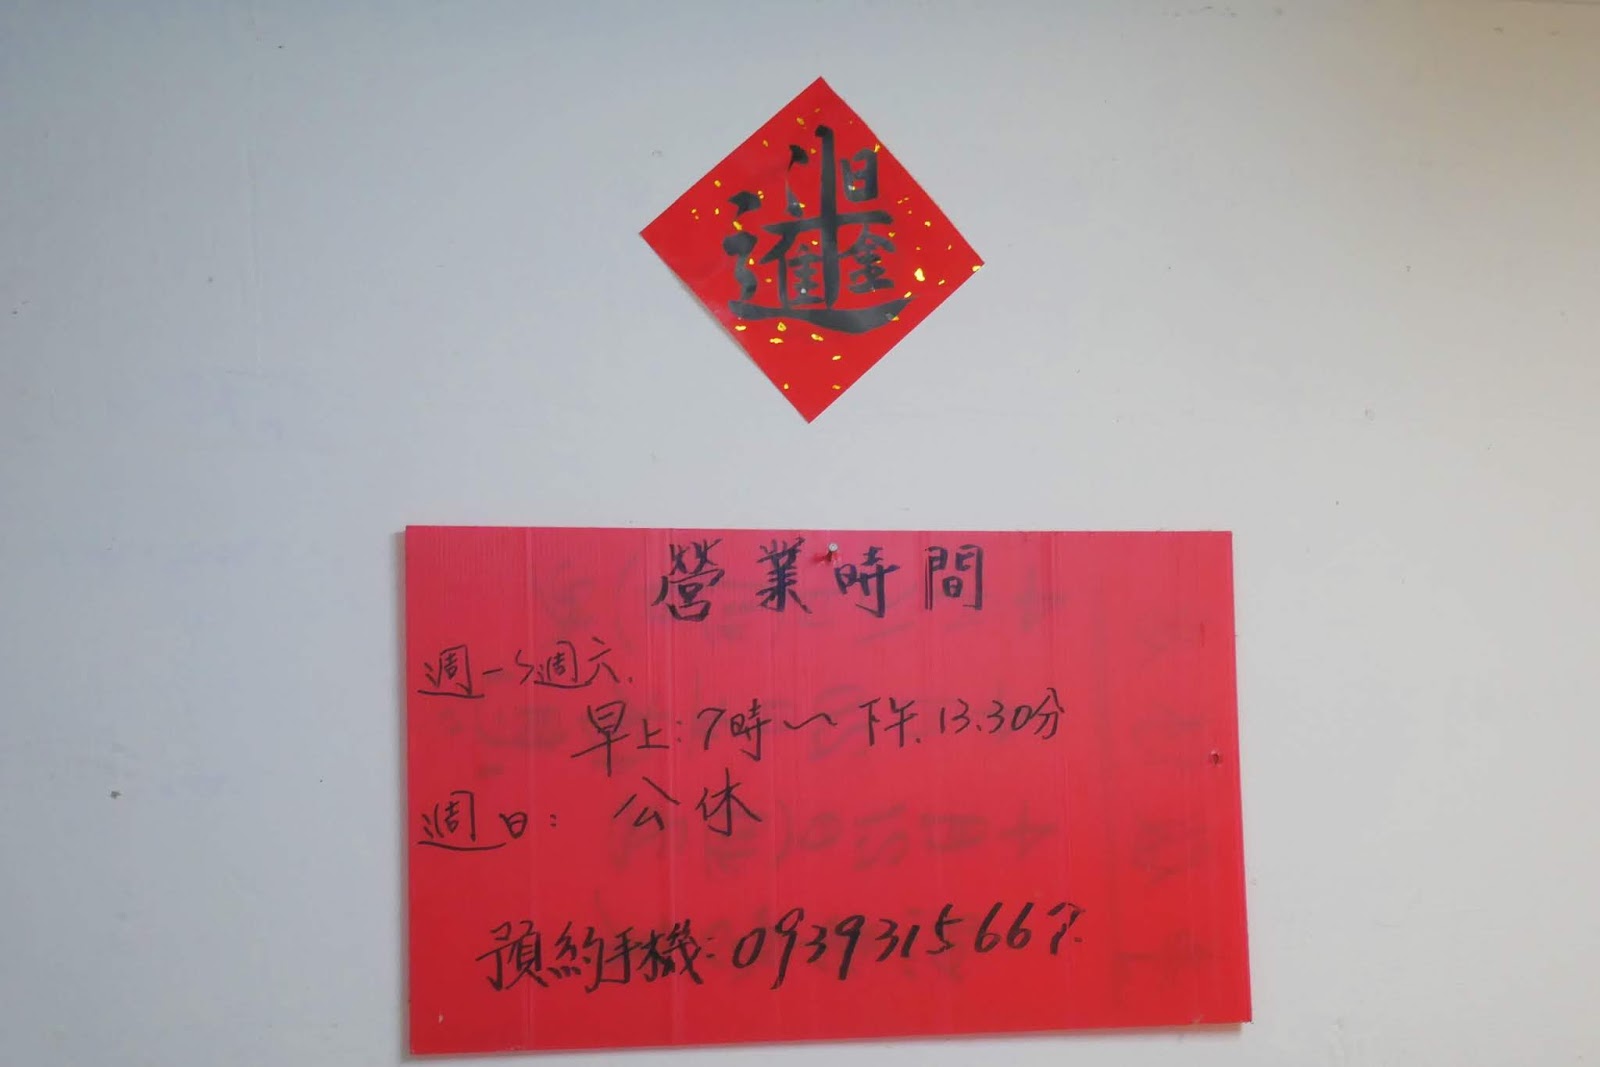 日進斗金
營業時間
週一~週六.
早上:7時~下午.13.30分
週日: 公休
預約手機:0939315667.